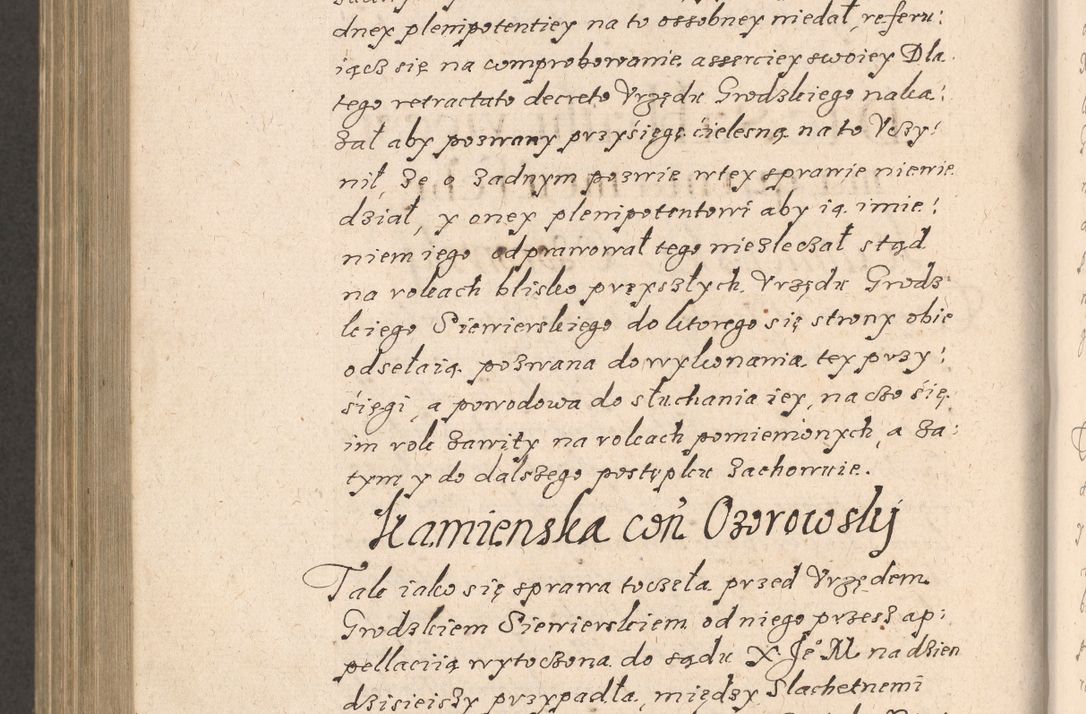 dney plenipotentiey na to ossobney niedał, referu:
iącz się na comprobowanie asserciey swoiey Dla
tego retractato decreto Vrzędu Grodzkiego naka:
zał aby pozwany przysięgę cielesną na to Vczy:
nił, że o żadnym pozwie w tey sprawie niewie
dział, y oney plenipotentowi aby ią imie:
niem iego odprawował tego niezleczał stąd
na rokach blisko przyszłych Vrzędu Grodz
kiego Siewierskiego do ktorego się strony obie
odsełaią pozwana do wykonania tey przy:
sięgi, a powodowa do słuchania iey, na czo się
im rok zawity na rokach pomienionych, a za:
tym y do dalszego postępku zachowuie.
Kamienska con Ozorowskij
Tak iako się sprawa toczeła przed Vrzędem
Grodzkiem Siewierskiem od niego przesz ap:
pellaciią wytoczona do sądu X. Je° M na dzien
dzisieiszy przypadła, między Slachetnemi